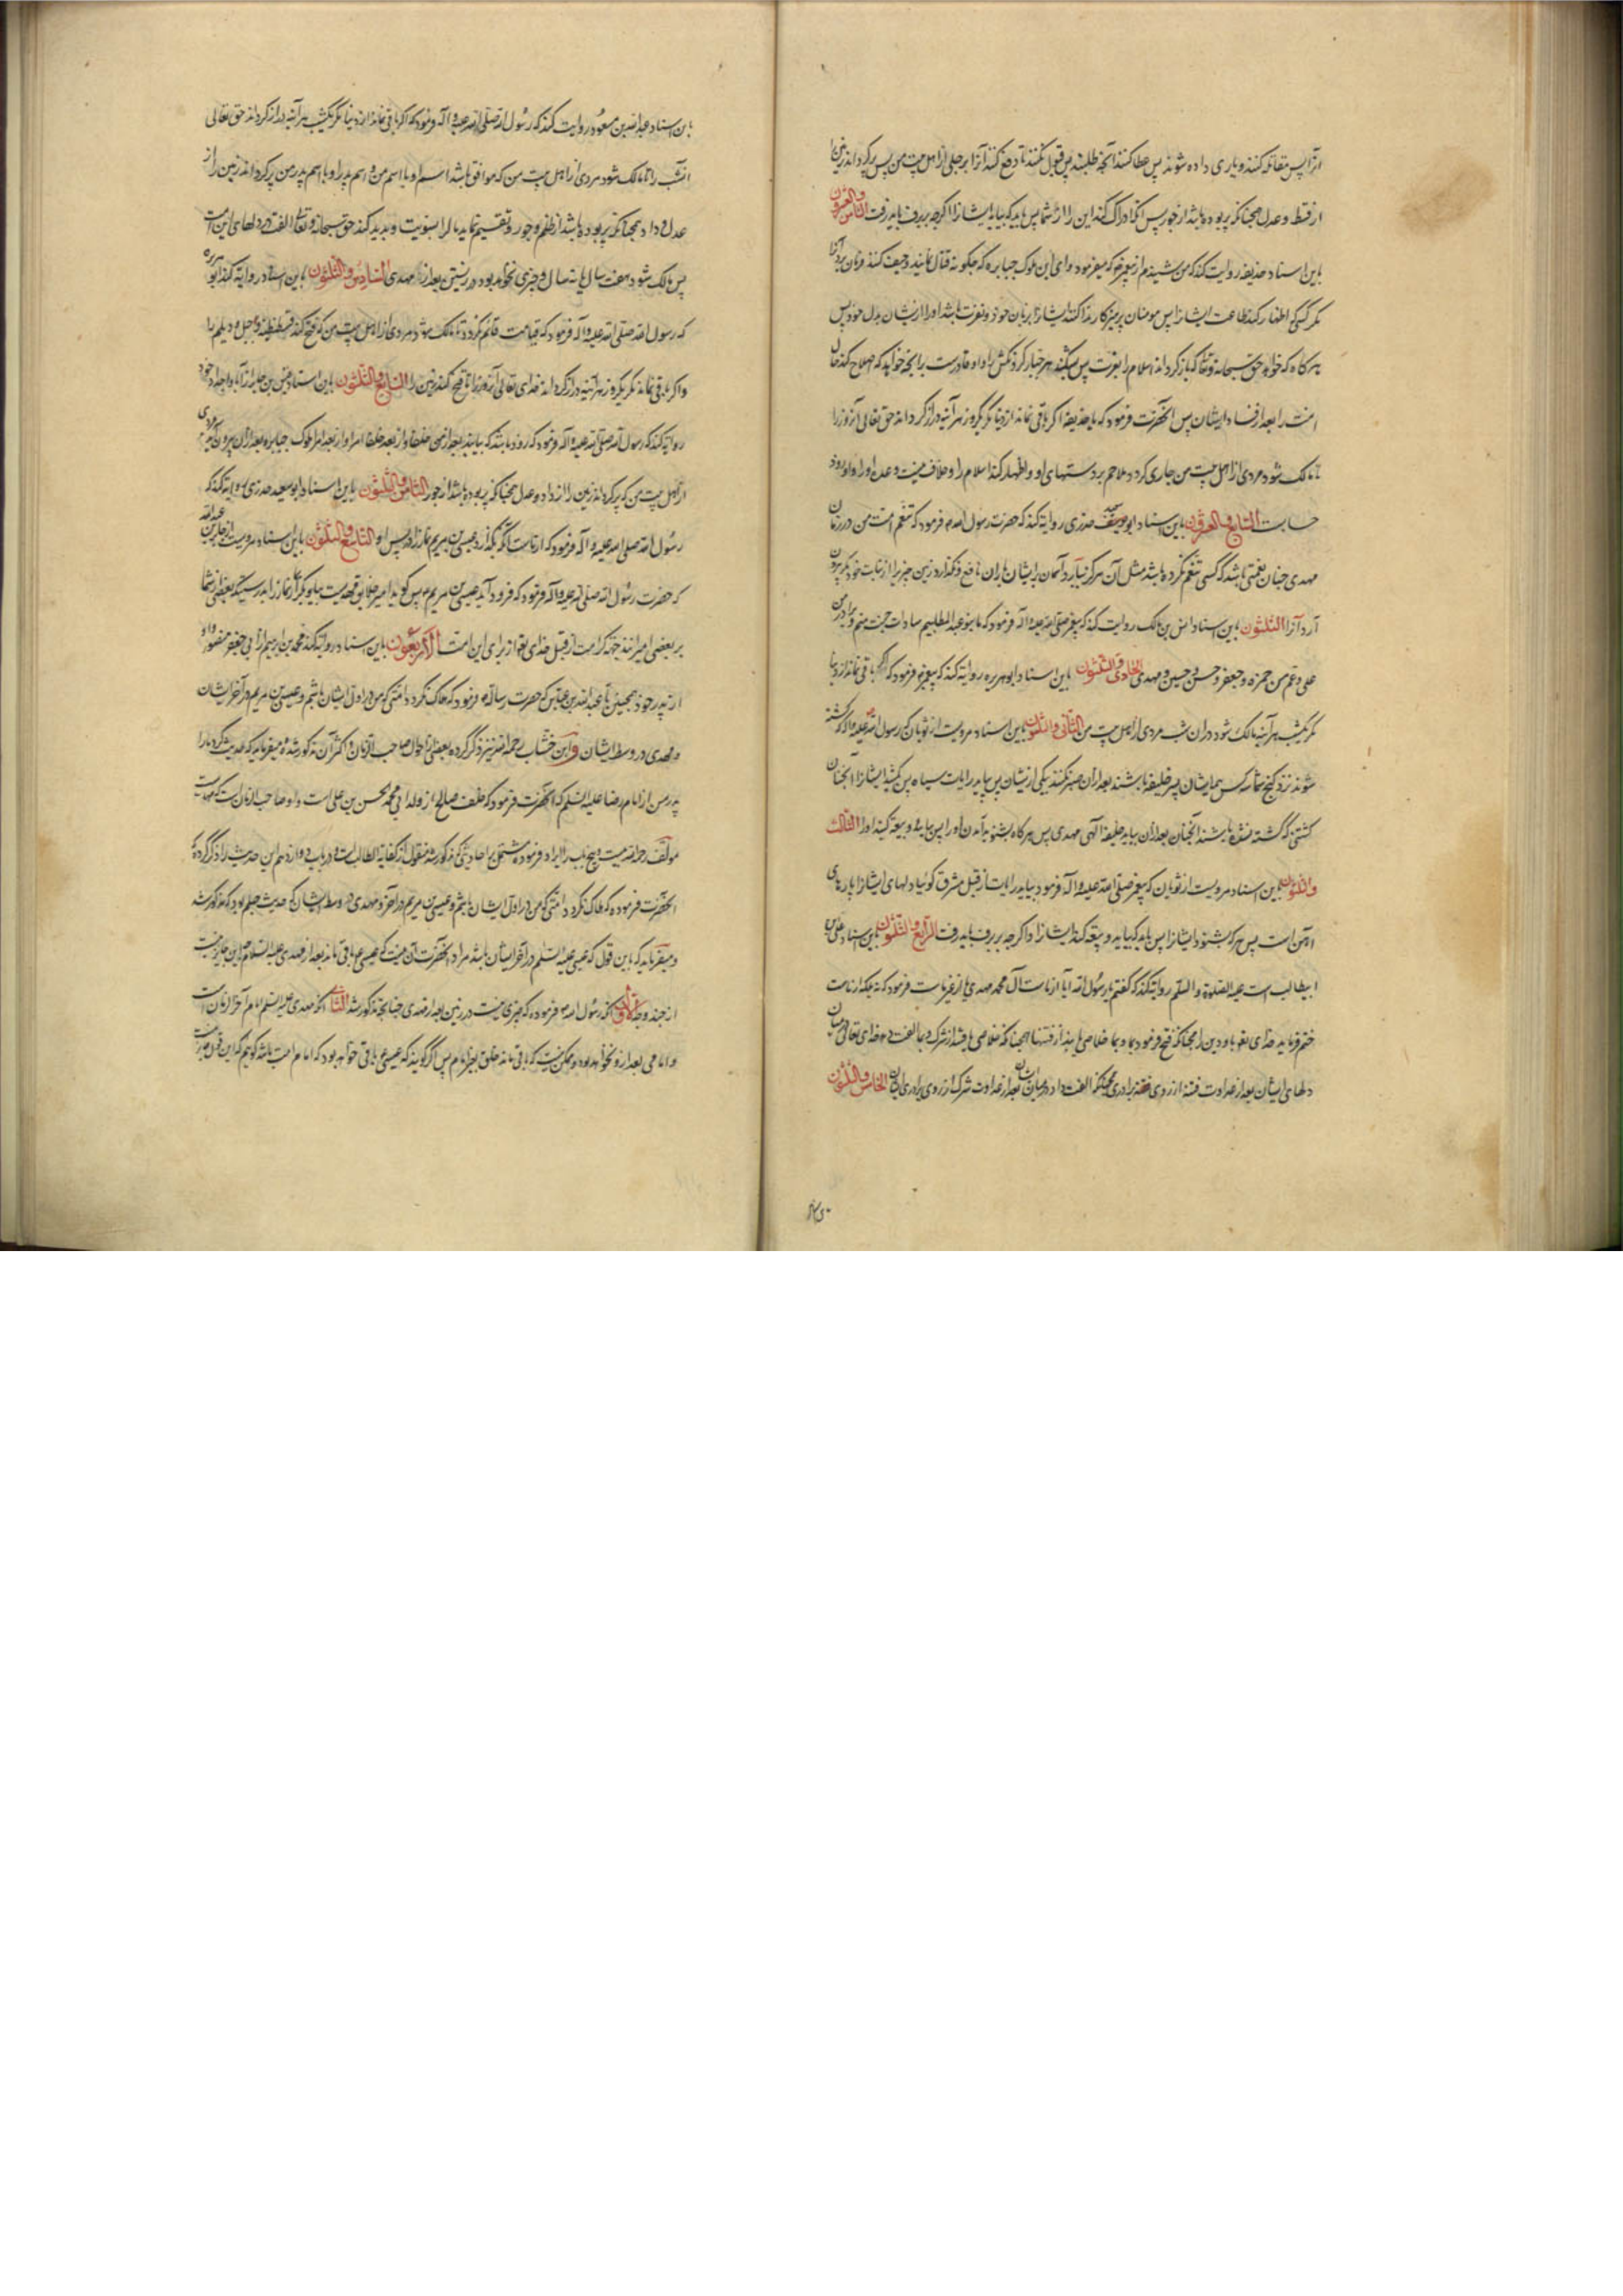 از قسط و عدل همچنانکه پر بوده باشد از جور پس اگر ادراک کند این را از شما پس باید که بیاید ایشانرا اگرچه ببرف باید رفت الثامن والعشرون
باین اسناد حذیفه روایت کند که من شنیدم از پیغمبر که میفرمود وای این ملوک جبابره که چگونه قتال نمایند
مگر کسی که اظهار کند طاعت ایشانرا پس مومنان پرهیزکار مدارا کنند ایشانرا بزبان خود و نفرت باشد او را از ایشان بدل خود پس
هر گاه که خواهد حق سبحانه وتعالی که بازگرداند اسلام را بعزت پس بشکند هر جبار گردنکش را و او قادرست بر آنچه خواهد که اصلاح کند حال
امت را بعد از فساد ایشان پس آنحضرت فرمود که یا حذیفه اگر باقی نماند از دنیا مگر یکروز هر آینه دراز گرداند حق تعالی آنروز را
تا مالک شود مردی از اهل بیت من جاری گردد ملاحم بر دستهای او و اظهار کند اسلام را و خلاف نیست وعده او را و او زود
حسابست التاسع والعشرون باین اسناد ابو سعید خدری روایة کند که حضرت رسول الله فرمود که تنعم امت من در زمان
مهدی چنان نعمتی باشد که کسی تنعم نکرده باشد مثل آن هرگز ببارد آسمان بر ایشان باران نافع و نگذارد زمین چیزیرا از نبات خود مگر بیرون
آرد آنرا الثلثون باین اسناد انس بن مالک روایت کند که پیغمبر صلی الله علیه وآله فرمود که ما بنو عبدالمطلبیم سادات جنت منم و برادر من
علی و عم من حمزه و جعفر و حسن و حسین و مهدی الحادی والثلثون باین اسناد ابوهریره روایة کند که پیغمبر فرمود که اگر باقی نماند از دنیا
مگر یکشب هر آینه مالک شود در آن شب مردی از اهل بیت من الثانی والثلثون باین اسناد مرویست از ثوبان که رسول الله صلی الله علیه وآله که کشته
شوند نزد گنج شما سه کس همه ایشان پسر خلیفه باشند بعد از آن صبر نکنند یکی از ایشان پس بیاید رایات سیاه پس بکشد ایشانرا آنچنان
کشتنی که کشته نشده باشند آنچنان بعد از آن بیاید خلیفة الهی مهدی پس هر گاه بشنوید آمدن او را پس بیایید و بیعة کنید او را الثالث
والثلثون باین اسناد مرویست از ثوبان که پیغمبر صلی الله علیه وآله فرمود بیاید رایات از قبل مشرق گوئیا دلهای ایشانرا پارهای
آهن است پس هر که بشنود ایشانرا پس باید که بیاید و بیعة کند ایشانرا و اگرچه ببرف باید رفت الرابع والثلثون باین اسناد علی بن
ابیطالب است علیه الصلوة والسلم روایة کند که گفتم یا رسول الله آیا از ماست آل محمد مهدی یا از غیر ماست فرمود که نه بلکه از ماست
ختم فرماید خدای بما دین را همچنانکه فتح فرمود بما و بما خلاصی یابند از فتنها همچنانکه خلاصی یافتند از شرک و بما الفت دهد خدای تعالی میان
دلهای ایشان بعد از عداوت فتنه از روی برادری همچنانکه الفت داد در میان ایشان بعد از عداوت شرک از روی برادری الخامس والثلثون
باین اسناد عبدالله بن مسعود روایت کند که رسول الله صلی الله علیه وآله فرمود که اگر باقی نماند از دنیا مگر یکشب هر آینه دراز گرداند حق تعالی
آنشب را تا مالک شود مردی از اهل بیت من که موافق باشد اسم او با اسم من و اسم پدر او با اسم پدر من پر گرداند زمین را از
عدل و داد همچنانکه پر بوده باشد از ظلم و جور و تقسیم نماید مال را بسویت و پدید کند حق سبحانه وتعالی الفت در دلهای این امت
پس مالک شود هفت سال یا نه سال و چیزی نخواهد بود در زیستن بعد از مهدی السادس والثلثون باین اسناد روایة کند ابو هریره
که رسول الله صلی الله علیه وآله فرمود که قیامت قائم نگردد تا مالک شود مردی از اهل بیت من که فتح کند قسطنطنیه و جبل دیلم را
و اگر باقی نماند مگر یکروز هر آینه دراز گرداند خدای تعالی آنروز را تا فتح کند زمین را السابع والثلثون باین اسناد قیس بن جابر از آبا و اجداد خود
روایة کند که رسول الله صلی الله علیه وآله فرمود که زود باشد که بیایند بعد از من خلفا و از بعد خلفا امرا و از بعد امرا ملوک جبابره و بعد از آن بیرون آید مردی
از اهل بیت من که پر گرداند زمین را از داد و عدل همچنانکه پر بوده باشد از جور الثامن والثلثون باین اسناد ابو سعید خدری روایة کند که
رسول الله صلی الله علیه وآله فرمود که از ماست آنکه بگذارد عیسی بن مریم نماز را در پس او التاسع والثلثون باین اسناد مرویست از جابر بن عبدالله
که حضرت رسول الله صلی الله علیه وآله فرمود که فرود آید عیسی بن مریم پس گوید امیر خلایق که مهدیست بیا و بگزار نماز را
بر بعضی امیرانند جهة کرامت از قبل خدای از برای این امت الاربعون باین اسناد روایة کند محمد بن ابراهیم از ابی جعفر منصور و او
از پدر خود همچنین تا عبدالله بن عباس که حضرت رساله فرمود که هلاک نگردد امتی که من در اول ایشان باشم و عیسی بن مریم در آخر ایشان
و مهدی در وسط ایشان و ابن خشاب رحمه الله نیز ذکر کرده بعضی از احوال صاحب الزمان و اکثر آن مذکور شده میفرماید که حدیث کرد ما را
پدر من از امام رضا علیه السلم که آنحضرت فرمود که خلف صالح از ولد ابی محمد الحسن بن علی است و او صاحب الزمان است
آنحضرت فرموده که هلاک نگردد امتی که من در اول ایشان باشم و عیسی بن مریم در آخر و مهدی در وسط ایشان
و میفرماید که باین قول که عیسی علیه السلم در آخر ایشان باشد مراد آنحضرت آن نیست که عیسی باقی ماند بعد از مهدی علیه السلام این جایز نیست
از چند وجه الاول آنکه رسول الله فرموده که خیری نیست در زیستن بعد از مهدی چنانچه مذکور شد الثانی آنکه مهدی علیه السلم امام آخر الزمان است
و امامی بعد از او نخواهد بود و ممکن نیست که باقی ماند خلق بغیر امام پس اگر گویند که عیسی باقی خواهد بود که امام امت باشد گوییم که این قول